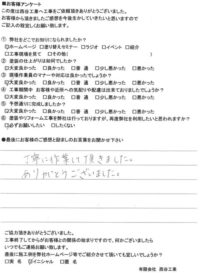 ■お客様アンケート
この度は西谷工業へ工事をご依頼頂きありがとうございました。
お客様から頂きましたご感想を今後生かしていきたいと思いますので
ご記入の程宜しくお願い致します。
①弊社をどこでお知りになられましたか？
☑ホームページ □塗り替えセミナー □ラジオ □イベント □紹介
□工事現場を見て □その他( )
②塗装の仕上がりは如何でしたか？
☑大変良かった □良かった □普通 □少し悪かった □悪かった
③現場作業員のマナーや対応は良かったでしょうか？
☑大変良かった □良かった □普通 □少し悪かった □悪かった
④工事期間中 お客様や近所への気配りや配達は出来ておりましたでしょうか？
☑大変良かった □良かった □普通 □少し悪かった □悪かった
⑤予想通りに完成しましたか？
☑大変良かった □良かった □普通 □少し悪かった □悪かった
⑥塗装やリフォーム工事を弊社は行っておりますが、再度弊社を利用したいと思われますか？
☑必ずお願いしたい □したくない
●最後にお客様のご感想と励ましのお言葉をお聞かせ下さい
丁寧に作業して頂きました。
ありがとうございました。
ご協力頂きありがとうございました。
工事終了してからがお客様との関係の始まりですので、何かございましたら
いつでもご連絡お願い致します。
最後に施工例を弊社ホームページ等でご紹介させて頂いても宜しいでしょうか？
□実名 ☑イニシャル □匿名
有限会社 西谷工業